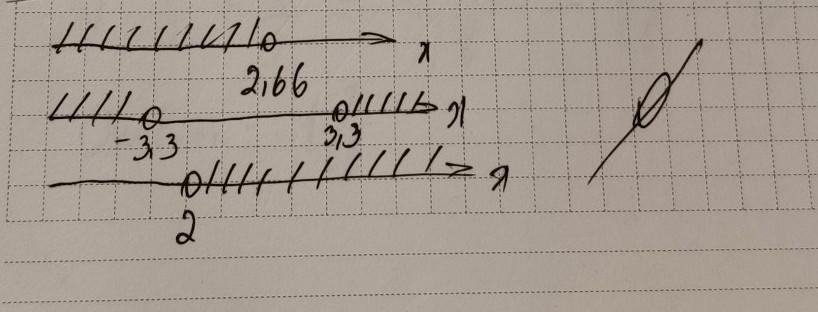 x
2,66
x
-3,3 3,3
x
2
∅